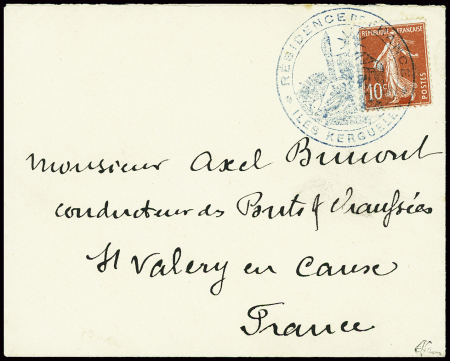 RÉSIDENCE DE FRANCE
* ILES KERGUELEN
REPUBLIQUE FRANÇAISE
10c
POSTES
Monsieur Axel Bumont
Conducteur des Ponts & Chaussées
St Valery en Cause
France